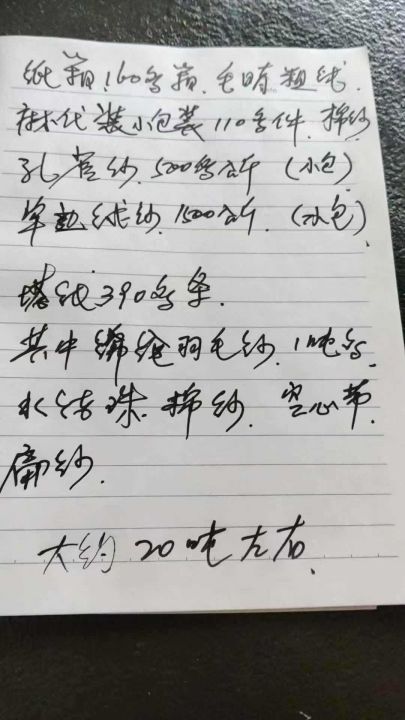 纸箱160多箱.毛晴粗线.
麻木代装小包装110多件.棉纱
孔雀纱.500多公斤(小包)
单边绒纱.1500公斤.(小包)
塔线390多条.
其中编绳羽毛纱.1吨多.
水结珠.棉纱.空心带.
扁纱.
大约20吨左右.